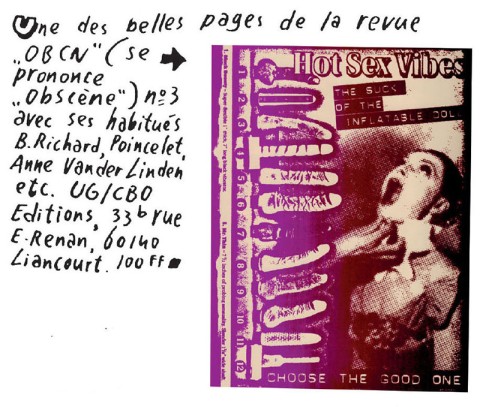 Une des belles pages de la revue
„OBCN" (se
prononce
„Obscène") nº3
avec ses habitués
B.Richard, Poincelet,
Anne Vander Linden
etc. UG/CBO
Editions, 33b rue
E.Renan, 60140
Liancourt. 100 FF
Hot Sex Vibes
THE SUCK
OF THE
INFLATABLE DOLL
1 2 3 4 5 6 7 8 9 10 11 12
CHOOSE THE GOOD ONE